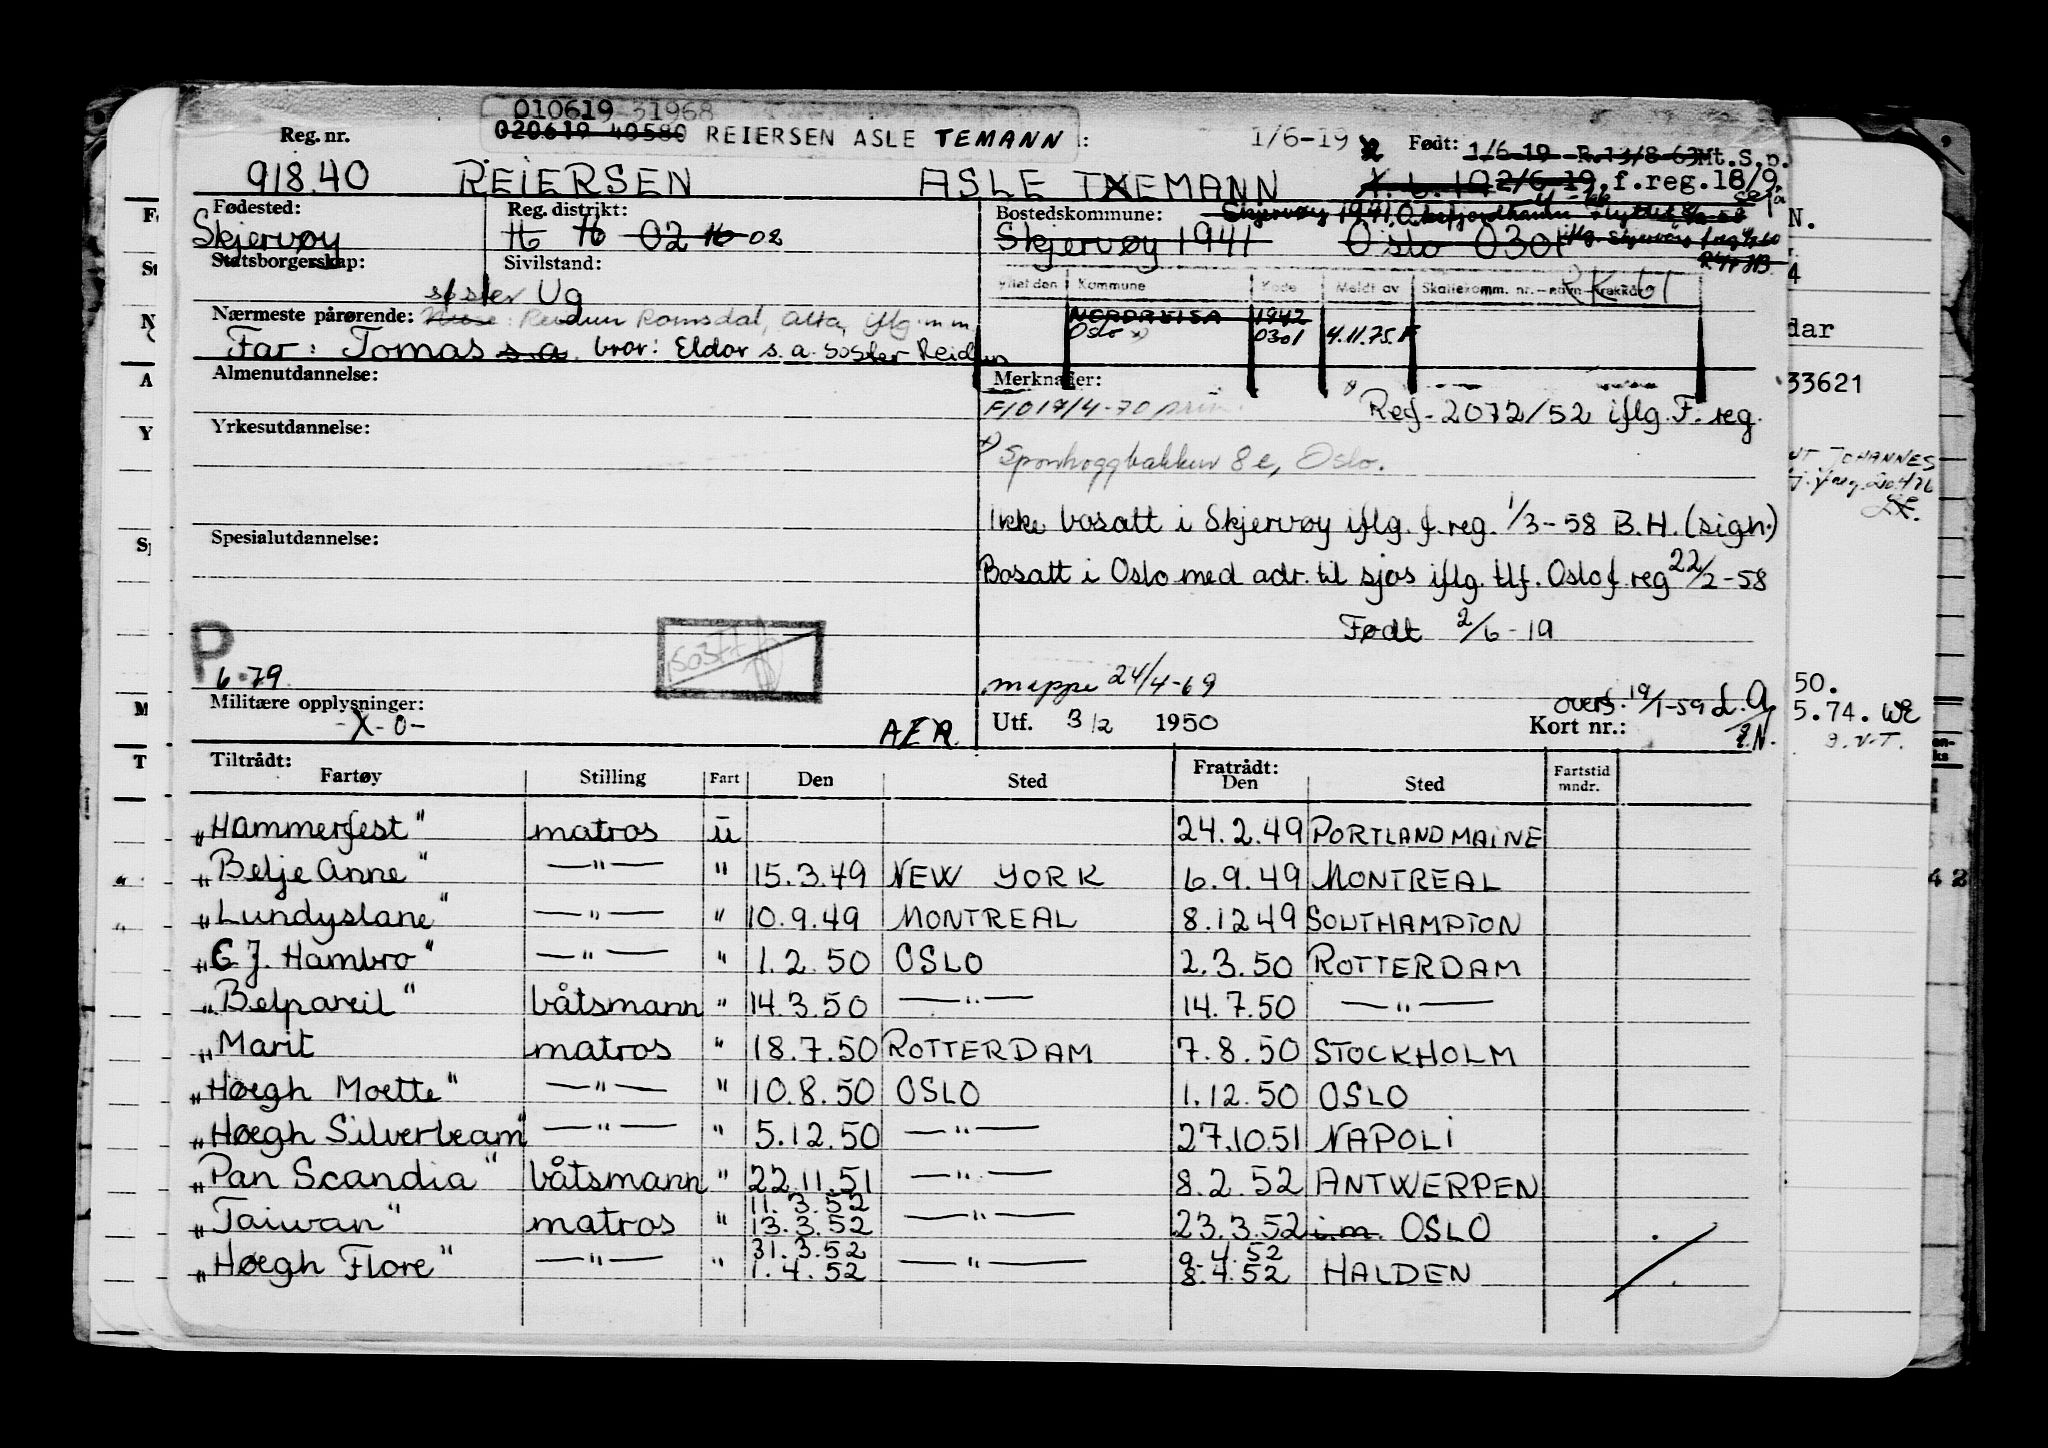 010619 31968
Reg. nr. 020619 40580 REIERSEN ASLE TEMANN 1/6-19 Født: 1/6-19 R.13/8-63 Mt.S.p.
918.40 REIERSEN ASLE TEMANN 2/6-19 f.reg.18/9
Fødested: Reg. distrikt: Bostedskommune: Skjervøy 1941
Skjervøy 02 02 Skjervøy 1941 Oslo 0301
Statsborgerskap: Sivilstand:
søster Ug
Flyttet den Kommune Kode Meldt av Skattekomm. nr. – navn – trekkdr.
Nærmeste pårørende: Reidun Romsdal, Alta, iflg. m.m.
NORDREISA 1942
Oslo 0301 4.11.75.F
Far: Tomas s.a. bror: Eldar s.a. søster Reidun
Almenutdannelse: Merknader:
F/017/4-70
Ref. 2072/52 iflg. F. reg.
33621
Yrkesutdannelse:
x) Sponhoggbakken 8c, Oslo.
JOHANNES
Ikke bosatt i Skjervøy iflg. f.reg. 1/3-58 B.H. (sign.)
Spesialutdannelse:
Bosatt i Oslo med adr. til sjøs iflg. tlf. Oslo f.reg 22/2-58
Født 2/6-19
P
6.79
mappe 24/4-69
50.
Militære opplysninger: overf. 19/1-59 L.A.
5.74. WE
-X-0- AEA. Utf. 3/2 1950 Kort nr.:
Tiltrådt: Fratrådt:
Fartøy Stilling Fart Den Sted Den Sted Fartstid mndr.
"Hammerfest" matros u 24.2.49 PORTLAND MAINE
"Belje Anne" —"— " 15.3.49 NEW YORK 6.9.49 MONTREAL
"Lundyslane" —"— " 10.9.49 MONTREAL 8.12.49 SOUTHAMPTON
"C J. Hambro" —"— " 1.2.50 OSLO 2.3.50 ROTTERDAM
"Belpareil" båtsmann " 14.3.50 —"— 14.7.50 —"—
"Marit matros " 18.7.50 ROTTERDAM 7.8.50 STOCKHOLM
"Høegh Moette" —"— " 10.8.50 OSLO 1.12.50 OSLO
"Høegh Silverbeam" —"— " 5.12.50 —"— 27.10.51 NAPOLI
"Pan Scandia" båtsmann " 22.11.51 —"— 8.2.52 ANTWERPEN
11.3.52
"Taiwan" matros " 13.3.52 —"— 23.3.52 i.m. OSLO
31.3.52 9.4.52
"Høegh Flore" —"— " 1.4.52 —"— 8.4.52 HALDEN